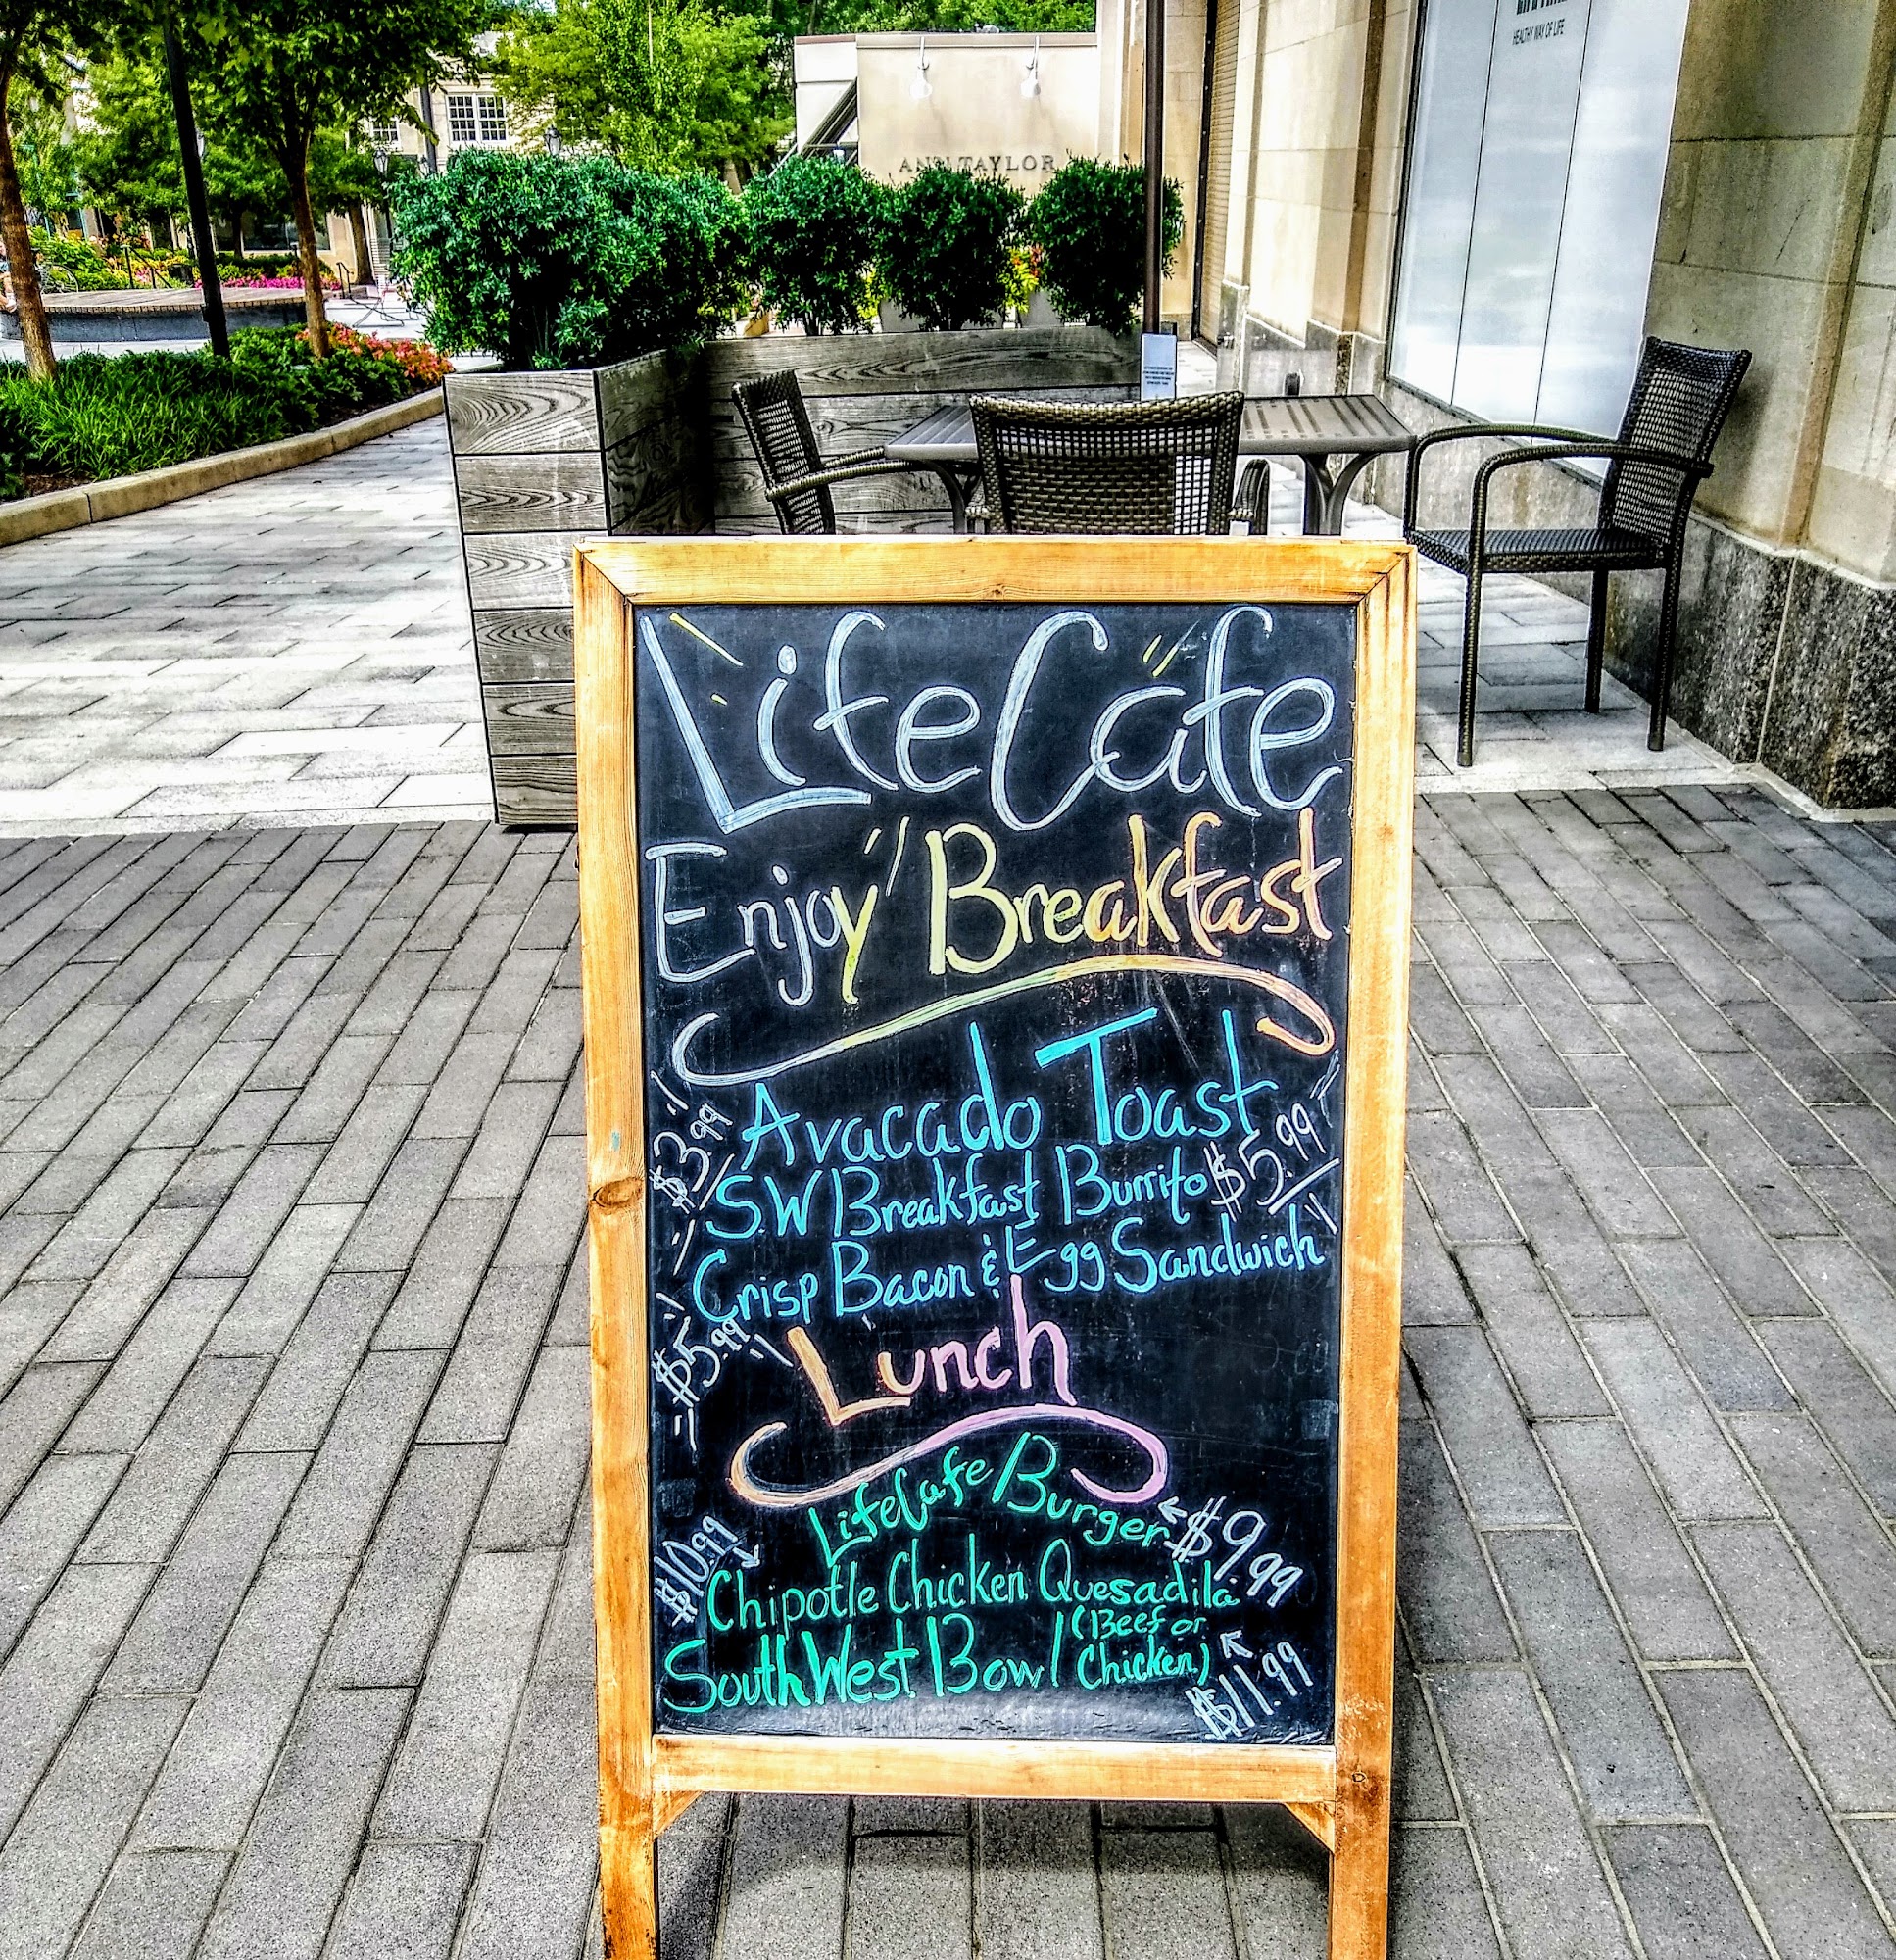 HEALTHY WAY OF LIFE
ANN TAYLOR
LifeCafe
Enjoy Breakfast
Avacado Toast
$3.99
SW Breakfast Burrito $5.99
Crisp Bacon & Egg Sandwich
$5.99
Lunch
LifeCafe Burger $9.99
$10.99
Chipotle Chicken Quesadila
SouthWest Bowl (Beef or
Chicken)
$11.99